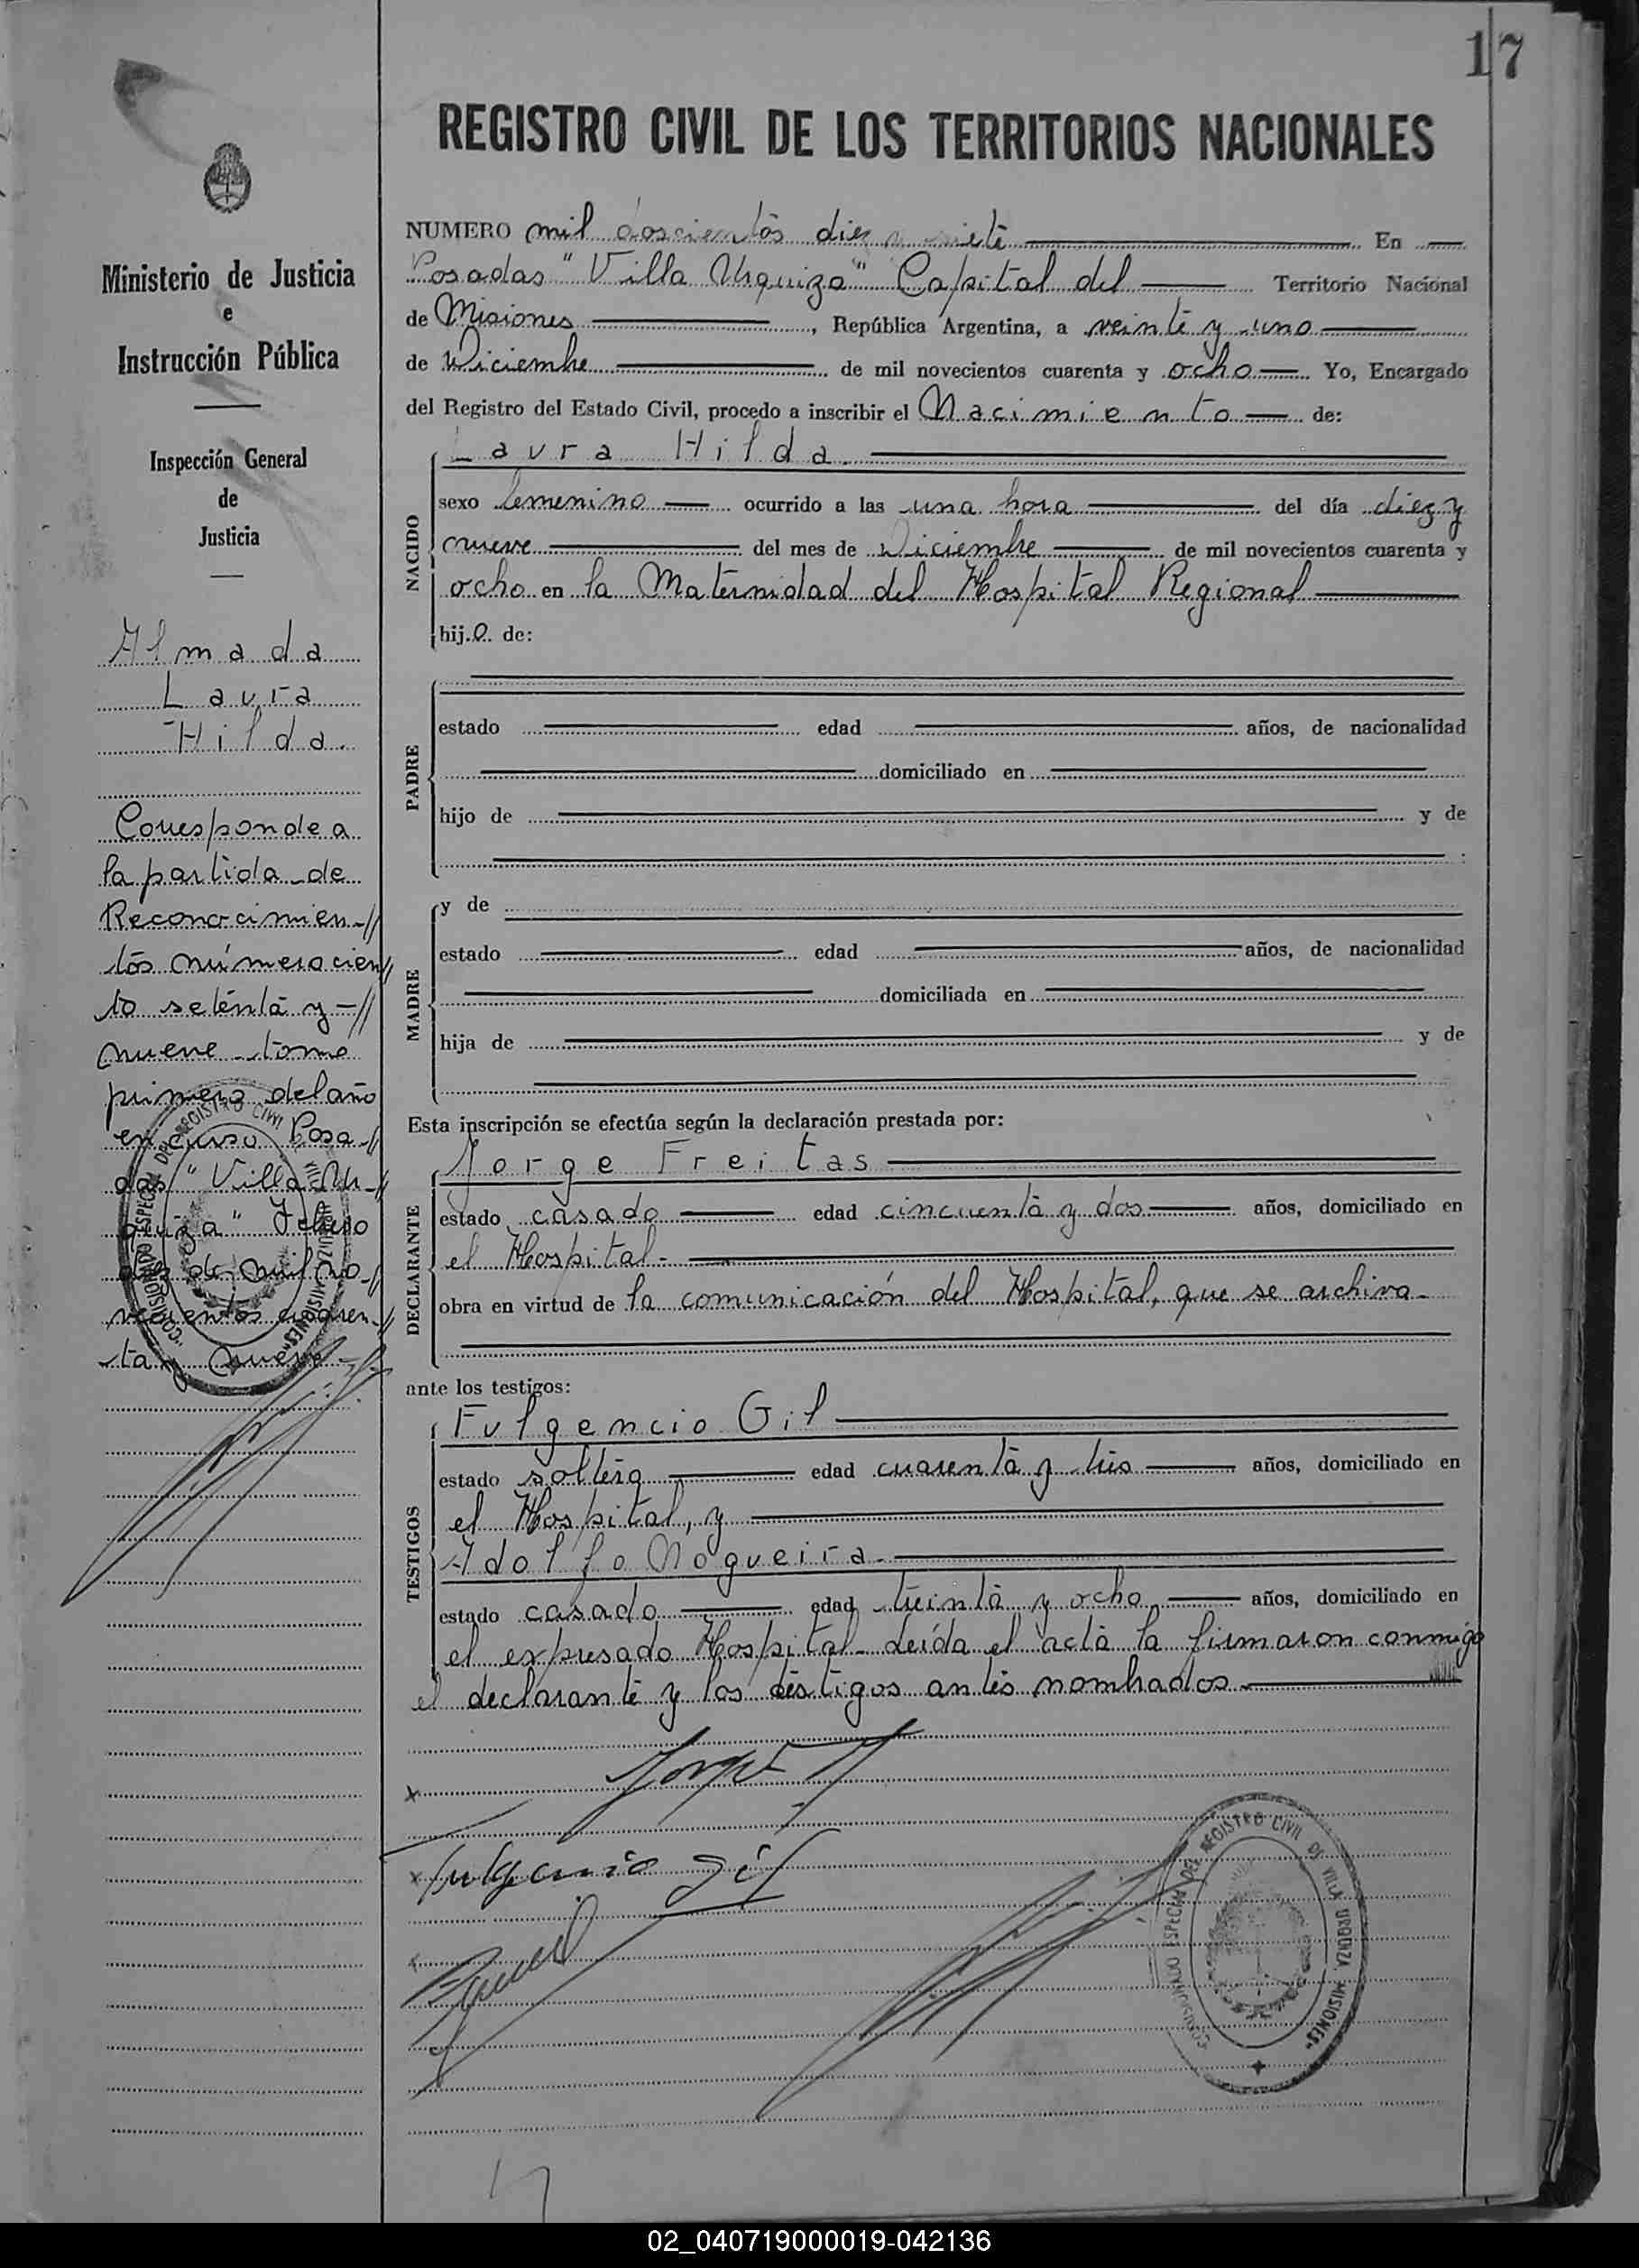 17
REGISTRO CIVIL DE LOS TERRITORIOS NACIONALES
Ministerio de Justicia
e
Instrucción Pública
Inspección General
de
Justicia
Almada
Laura
Hilda.
Corresponde a
la partida de
Reconocimien-//
tos número cien//
to setenta y -//
nueve tomo
primero del año
en curso Posa-//
das "Villa Ur-//
quiza" Febrero
de mil no-//
vecientos cuaren-//
ta y nueve
NUMERO mil doscientos diez y siete En
Posadas "Villa Urquiza" Capital del Territorio Nacional
de Misiones , República Argentina, a veinte y uno
de Diciembre de mil novecientos cuarenta y ocho Yo, Encargado
del Registro del Estado Civil, procedo a inscribir el Nacimiento de:
Laura Hilda.
NACIDO
sexo femenino ocurrido a las una hora del día diez y
nueve del mes de Diciembre de mil novecientos cuarenta y
ocho en la Maternidad del Hospital Regional
hij.a. de:
PADRE
estado edad años, de nacionalidad
domiciliado en
hijo de y de
MADRE
y de
estado edad años, de nacionalidad
domiciliada en
hija de y de
Esta inscripción se efectúa según la declaración prestada por:
Jorge Freitas
DECLARANTE
estado casado edad cincuenta y dos años, domiciliado en
el Hospital.-
obra en virtud de la comunicación del Hospital, que se archiva.-
ante los testigos:
TESTIGOS
Fulgencio Gil
estado soltero edad cuarenta y tres años, domiciliado en
el Hospital, y
Adolfo Nogueira.
estado casado edad treinta y ocho años, domiciliado en
el expresado Hospital.- Leída el acta la firmaron conmigo
el declarante y los testigos antes nombrados.
x Jorge
x Fulgencio Gil
COMISIONADO ESPECIAL DEL REGISTRO CIVIL DE VILLA URQUIZA "MISIONES"
17
02_040719000019-042136